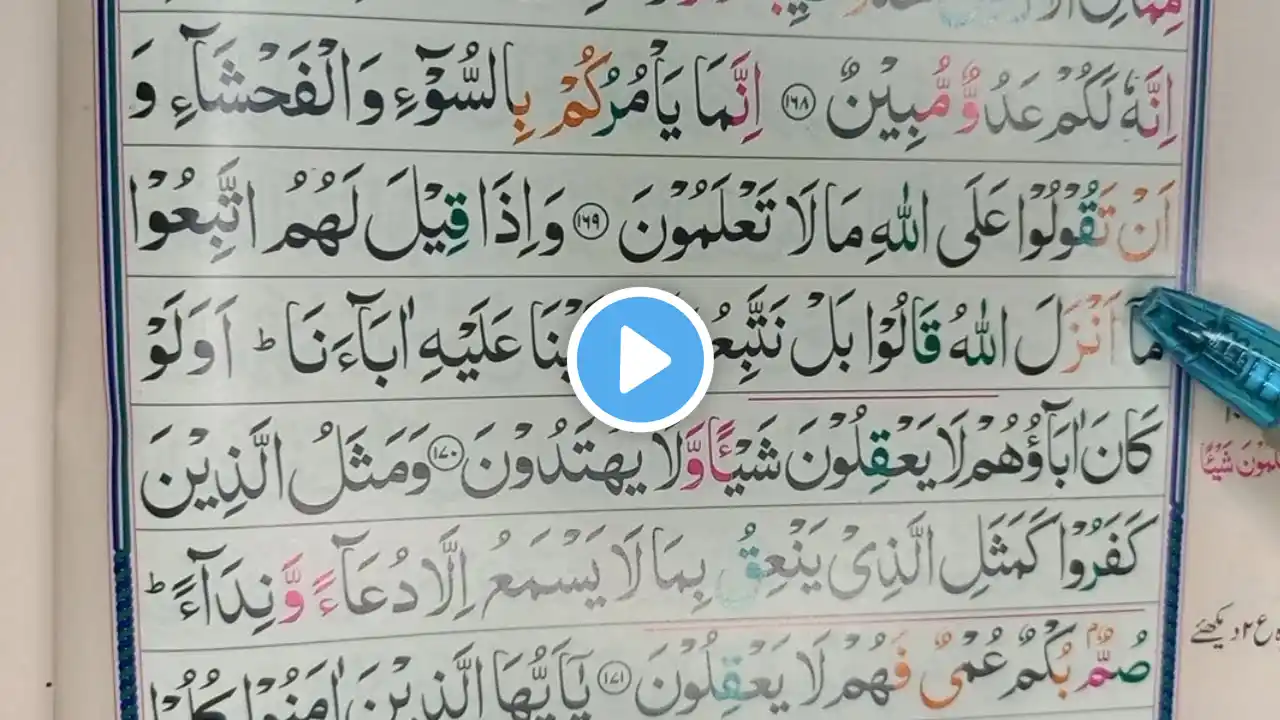 اِنَّهٗ لَكُمْ عَدُوٌّ مُّبِيْنٌ ۝۱۶۸ اِنَّمَا يَاْمُرُكُمْ بِالسُّوْٓءِ وَالْفَحْشَآءِ وَ
اَنْ تَقُوْلُوْا عَلَى اللّٰهِ مَا لَا تَعْلَمُوْنَ ۝۱۶۹ وَاِذَا قِيْلَ لَهُمُ اتَّبِعُوْا
مَآ اَنْزَلَ اللّٰهُ قَالُوْا بَلْ نَتَّبِعُ عَلَيْهِ اٰبَآءَنَا ؕ اَوَلَوْ
كَانَ اٰبَآؤُهُمْ لَا يَعْقِلُوْنَ شَيْـًٔا وَّلَا يَهْتَدُوْنَ ۝۱۷۰ وَمَثَلُ الَّذِيْنَ
كَفَرُوْا كَمَثَلِ الَّذِىْ يَنْعِقُ بِمَا لَا يَسْمَعُ اِلَّا دُعَآءً وَّنِدَآءً ؕ
صُمٌّۢ بُكْمٌ عُمْىٌ فَهُمْ لَا يَعْقِلُوْنَ ۝۱۷۱ يٰۤاَيُّهَا الَّذِيْنَ اٰمَنُوْا كُلُوْا